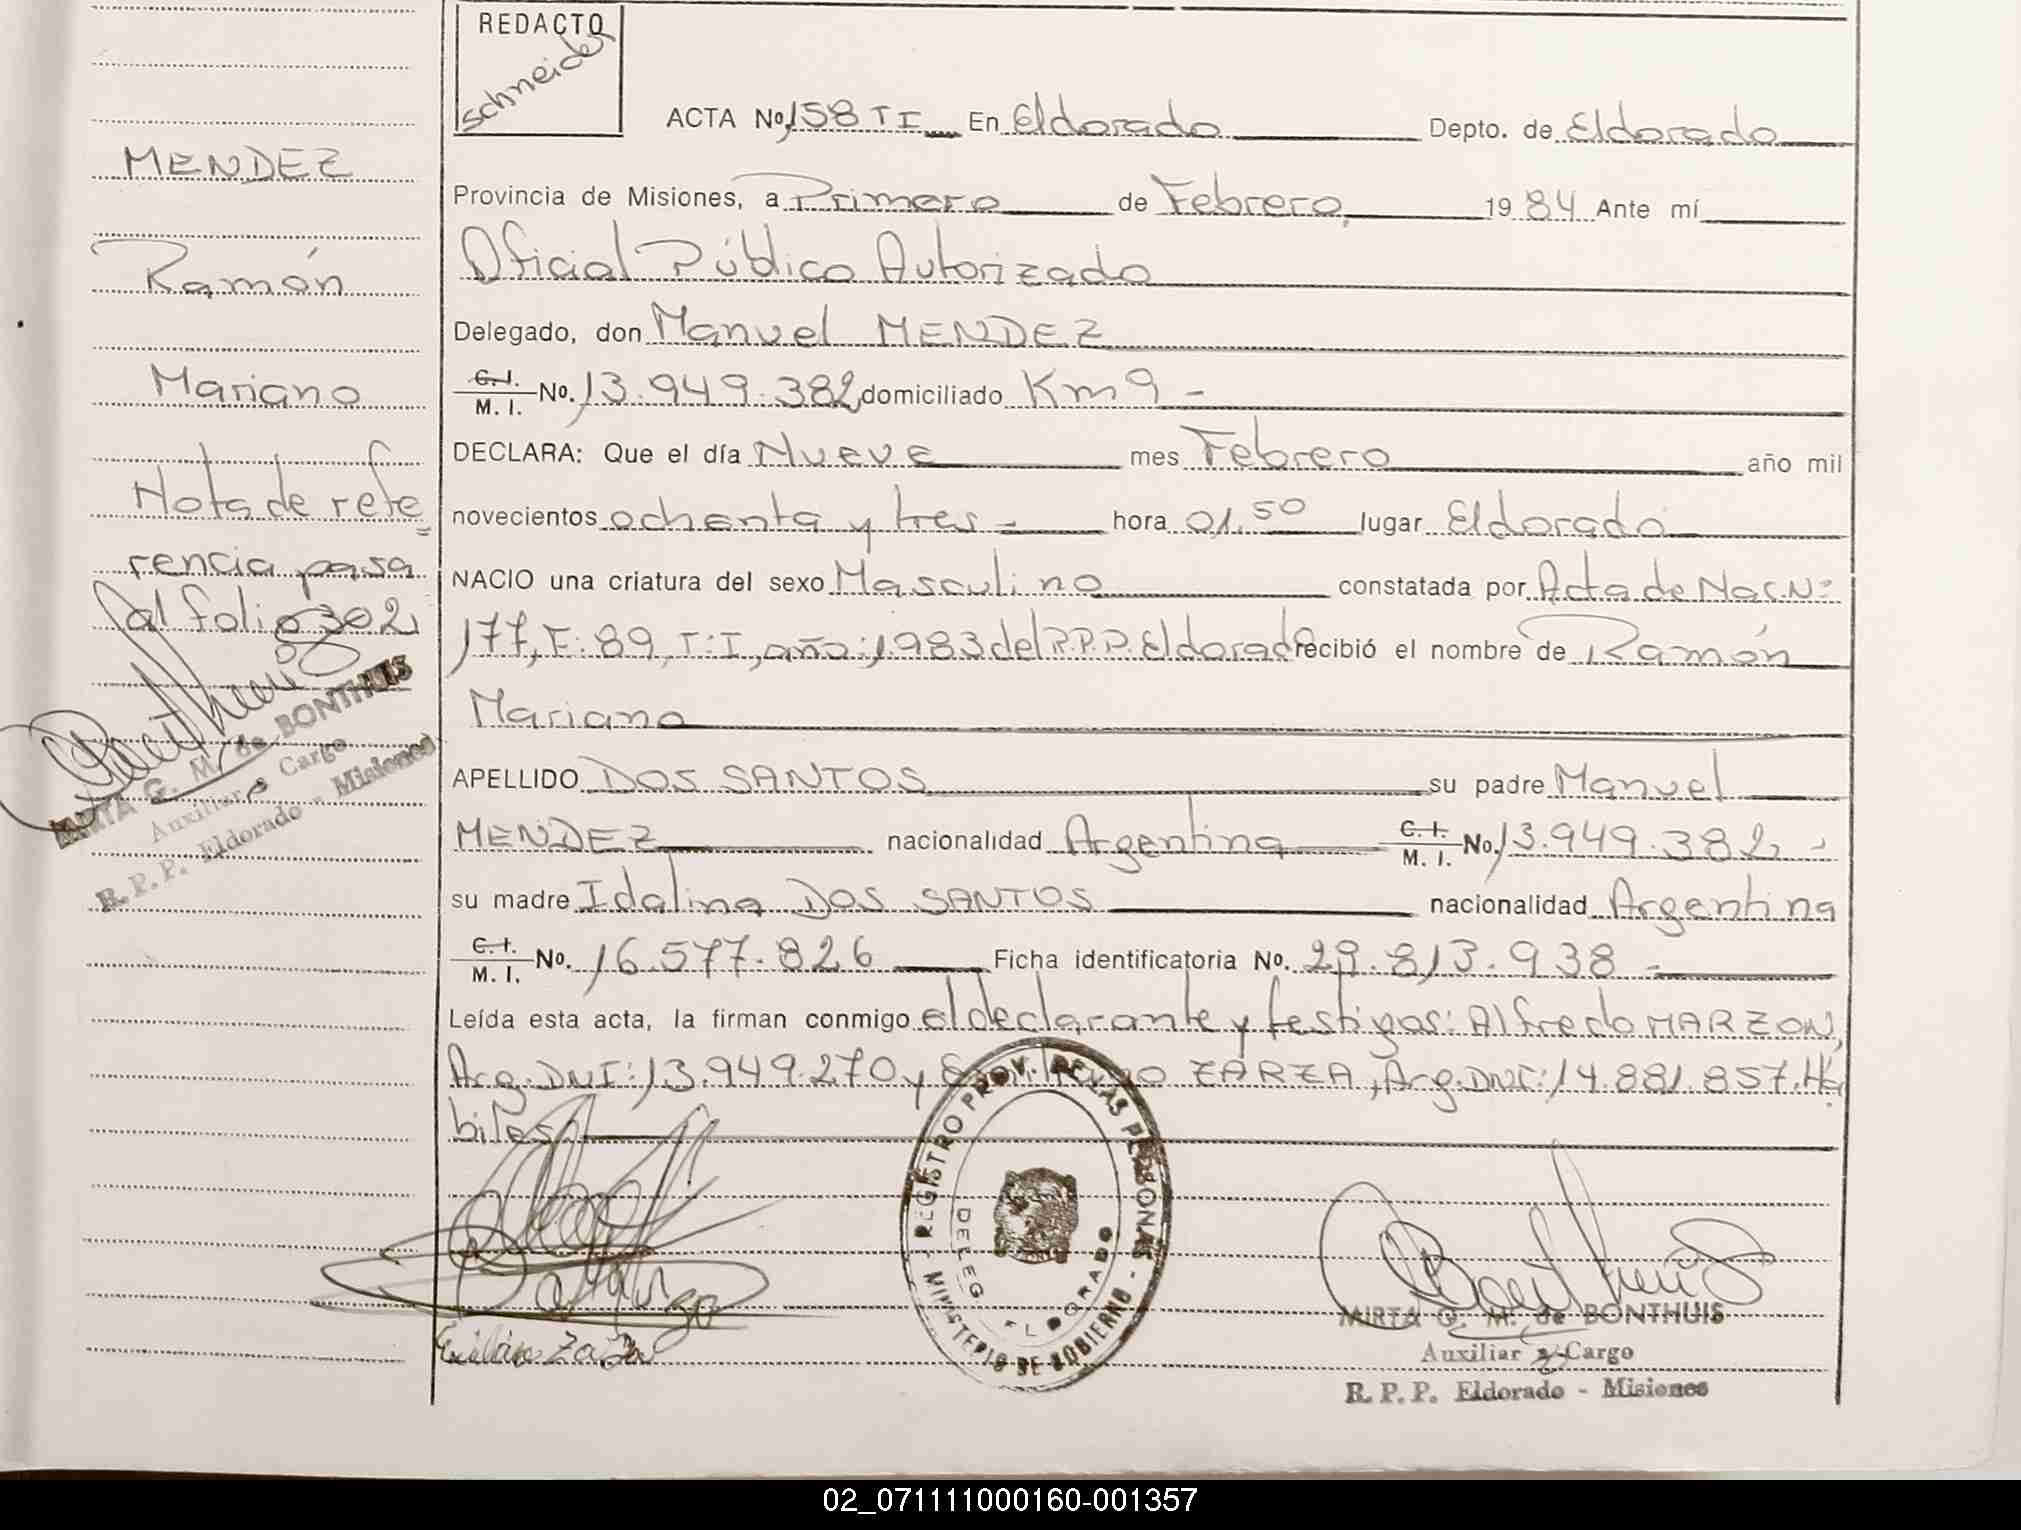 REDACTO
schneider
ACTA No. 158 T I En Eldorado Depto. de Eldorado
Provincia de Misiones, a Primero de Febrero, 1984 Ante mí
Oficial Público Autorizado
Delegado, don Manuel MENDEZ
C.I. M.I. No. 13.949.382 domiciliado Km 9 -
DECLARA: Que el día Nueve mes Febrero año mil
novecientos ochenta y tres - hora 01.50 lugar Eldorado
NACIO una criatura del sexo Masculino constatada por Acta de Nac.Nº
177, F: 89, T: I, año: 1983 del R.P.P. Eldorado recibió el nombre de Ramón
Mariano
APELLIDO DOS SANTOS su padre Manuel
MENDEZ nacionalidad Argentina C.I. M.I. No. 13.949.382 -
su madre Idalina DOS SANTOS nacionalidad Argentina
C.I. M.I. No. 16.577.826 Ficha identificatoria No. 29.813.938 -
Leída esta acta, la firman conmigo el declarante y testigos: Alfredo MARZON,
Arg. DNI: 13.949.270 y ZARZA, Arg. DNI: 14.881.857. Há
biles
MENDEZ
Ramón
Mariano
Nota de refe=
rencia pasa
al folio 302
MIRTA G. M. de BONTHUIS
Auxiliar a Cargo
R. P. P. Eldorado - Misiones
REGISTRO PROV. DE LAS PERSONAS - MINISTERIO DE GOBIERNO -
DELEG. ELDORADO
MIRTA G. M. de BONTHUIS
Auxiliar a Cargo
R. P. P. Eldorado - Misiones
02_071111000160-001357